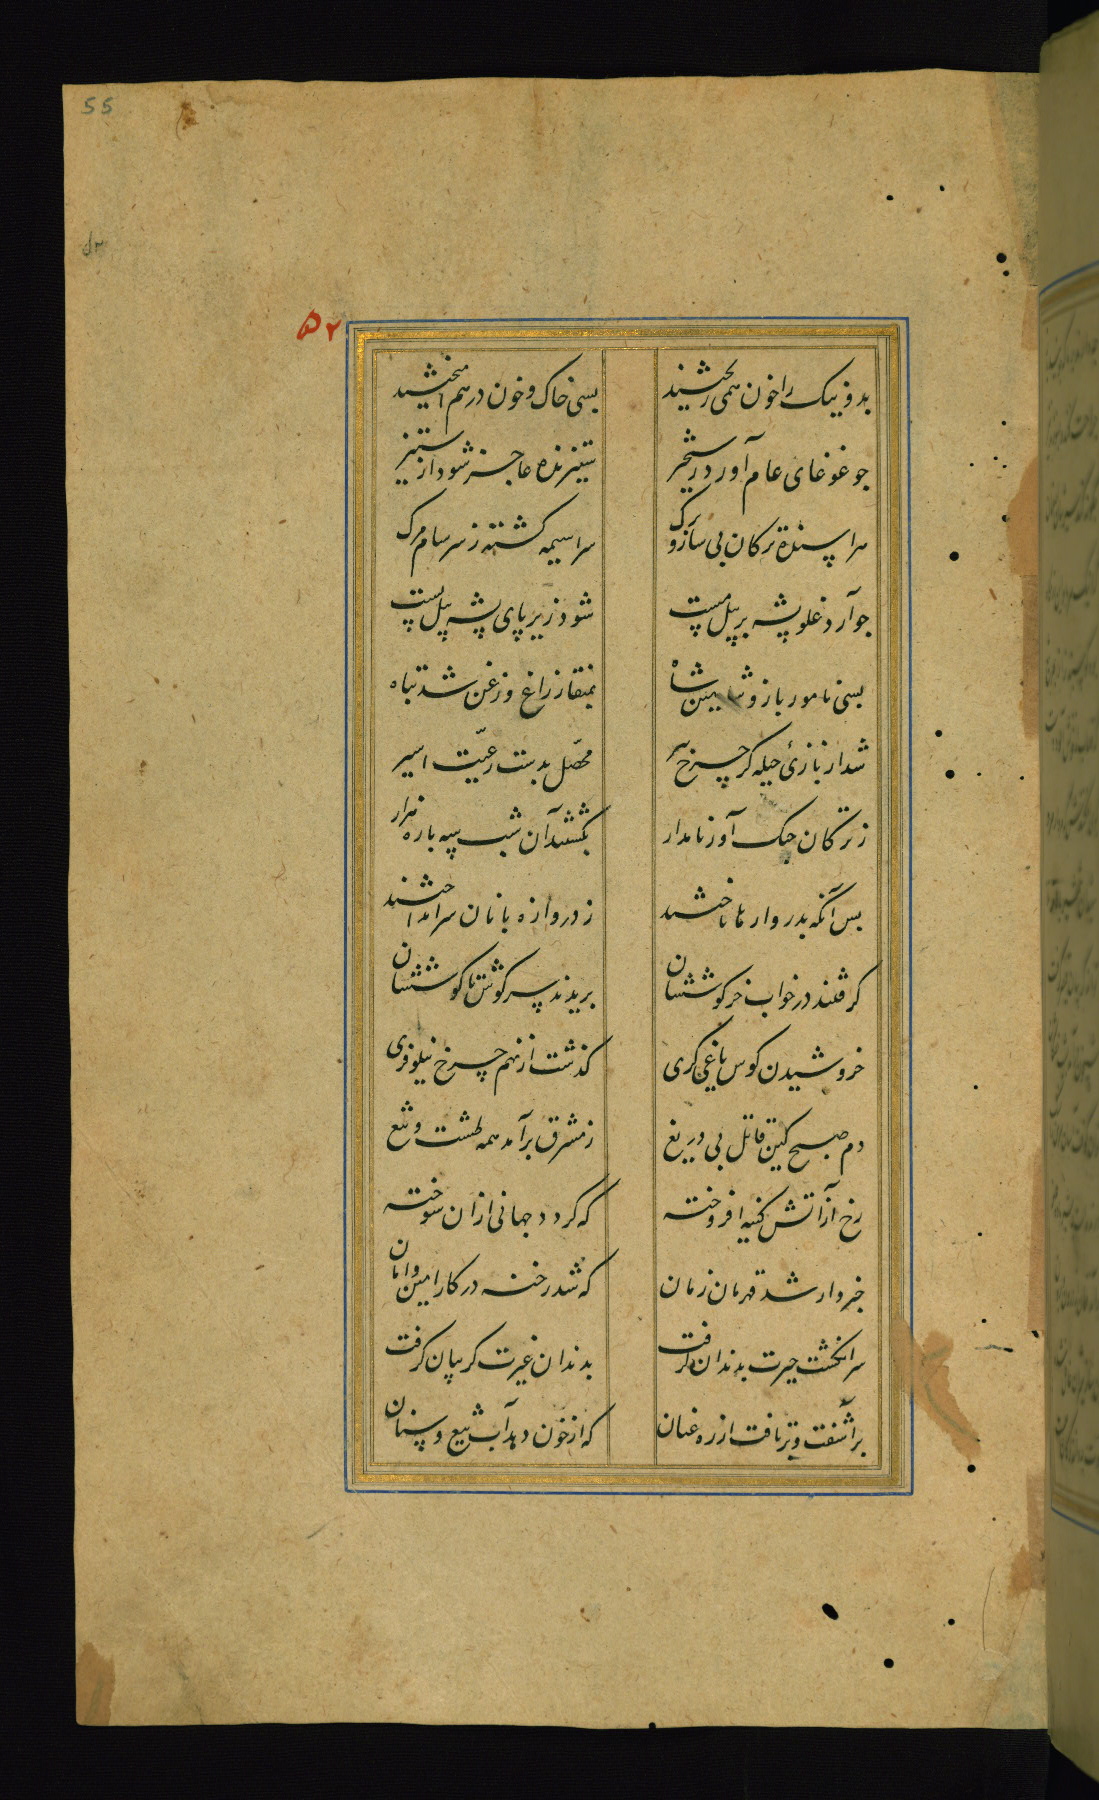 55
۵۲
بد و نیک را خون همی ریختند بسی خاک و خون در هم آمیختند
چو غوغای عام آورد رستخیز ستیزنده عاجز شود از ستیز
سراسیمه گشته ز سرسام مرگ
چو آرد غلو پشه بر پیل مست شود زیر پای پشه پیل پست
بسی نامور باز و شاهین شاه بمنقار زاغ و زغن شد تباه
شد از بازئ حیله گر چرخ پیر محصّل بدست رعیّت اسیر
ز ترکان جنگ آور نامدار بکشتند آن شب سه باره هزار
پس آنگه بدروازها تاختند ز دروازه بانان سر انداختند
گرفتند در خواب خرگوششان بریدند سر گوش تا گوششان
خروشیدن کوس یاغی گری گذشت از نهم چرخ نیلوفری
دم صبح کین قاتل بی دریغ ز مشرق برآمد همه طشت و تیغ
رخ از آتش کینه افروخته که گردد جهانی از آن سوخته
خبردار شد قهرمان زمان که شد رخنه در کار امین و امان
سر انگشت حیرت بدندان گرفت بدندان غیرت گریبان گرفت
برآشفت و برتافت از ره عنان که از خون دهد آب تیغ و سنان